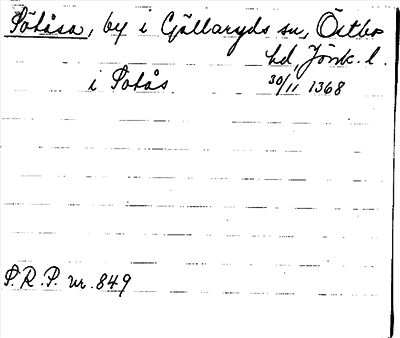 Sötåsa, by i Gällaryds sn, Östbo
hd, Jönk. l.
i Sotås 30/11 1368
S.R.P. nr. 849